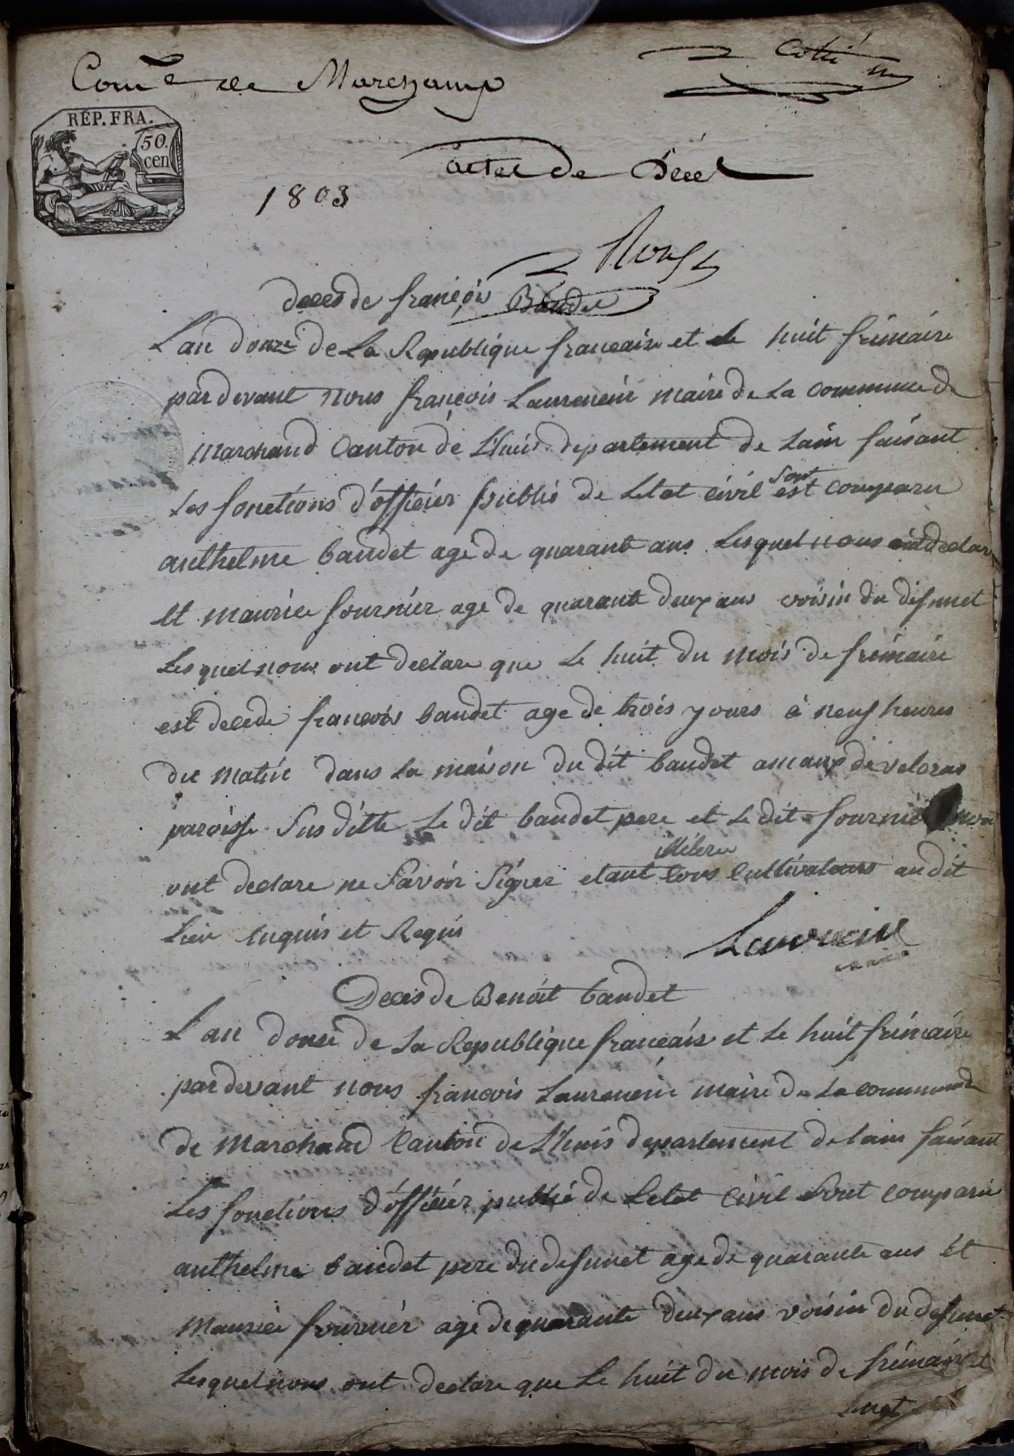 Com.e de Marchamp
REP. FRA.
50.
cen
actes de Décès
1803
deces de francois Baudet
Lan douze de La Republique francaise et le huit frimaire
pardevant nous francois Laurencin maire de La commune de
Marchand Canton de Lhuis departement de Lain faisant
Les fonctions d'officier publié de Letat civil sont est comparu
anthelme baudet age de quarante ans Lesquel nous
Et maurice fournier age de quarante deux ans voisin du defunct
Lesquel nous ont declare que Le huit du mois de frimaire
est decede francois baudet age de trois jours à neuf heures
du matin dans La maison du dit baudet
paroisse Sus ditte Le dit baudet pere et Le dit fournier
ont declare ne Savoir Signer etant tous Cultivateurs au dit
Lieu Enquis et Requis
Laurencin
maire
Deces de Benoit baudet
L'an douse de La Republique francaise et Le huit frimaire
pardevant nous francois Laurencin maire de La commune
de Marchand Canton de Lhuis departement de Lain faisant
Les fonctions d'officier publié de Letat Civil Sont Comparu
anthelme baudet pere du defunct age de quarante ans Et
Maurice fournier age de quarante deux ans voisin du defunct
Lesquel nous ont declare que Le huit du mois de frimaire